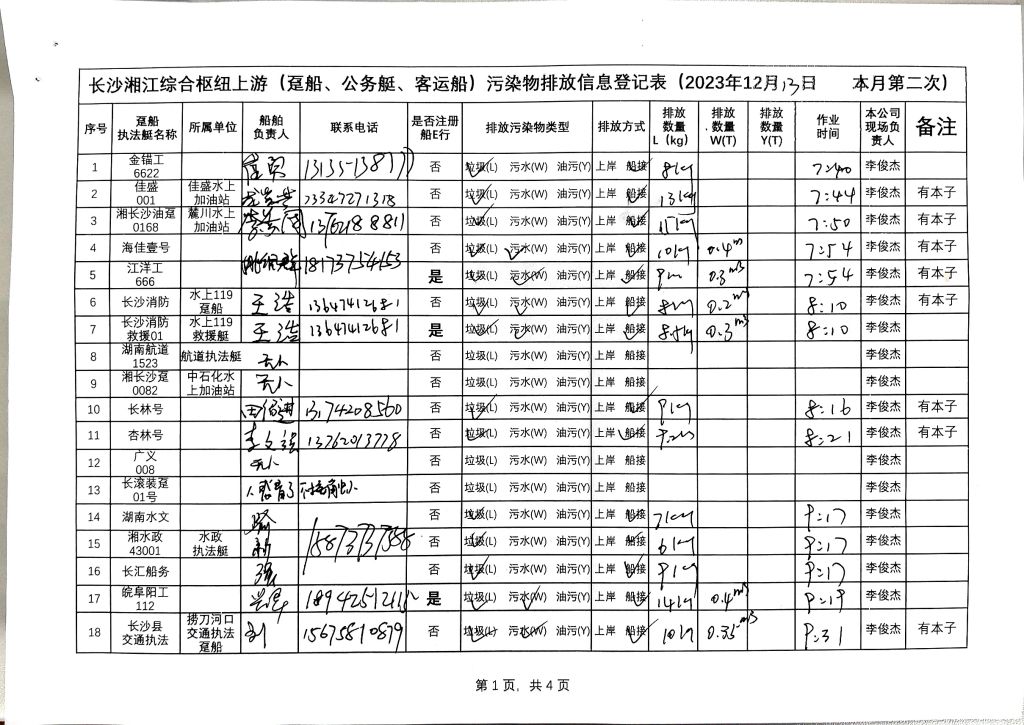 长沙湘江综合枢纽上游（趸船、公务艇、客运船）污染物排放信息登记表（2023年12月13日 本月第二次）
序号 趸船执法艇名称 所属单位 船舶负责人 联系电话 是否注册船E行 排放污染物类型 排放方式 排放数量L（kg） 排放数量W(T) 排放数量Y(T) 作业时间 本公司现场负责人 备注
1 金锚工6622 否 垃圾(L) 污水(W) 油污(Y) 上岸 船接 8kg 7:40 李俊杰
2 佳盛001 佳盛水上加油站 否 垃圾(L) 污水(W) 油污(Y) 上岸 船接 13kg 7:44 李俊杰 有本子
3 湘长沙油趸0168 麓川水上加油站 否 垃圾(L) 污水(W) 油污(Y) 上岸 船接 7:50 李俊杰 有本子
4 海佳壹号 否 垃圾(L) 污水(W) 油污(Y) 上岸 船接 10kg 0.4m 7:54 李俊杰 有本子
5 江洋工666 18173754153 是 垃圾(L) 污水(W) 油污(Y) 上岸 船接 0.3m3 7:54 李俊杰 有本子
6 长沙消防 水上119趸船 王浩 13647412681 否 垃圾(L) 污水(W) 油污(Y) 上岸 船接 8kg 0.2m3 8:10 李俊杰 有本子
7 长沙消防救援01 水上119救援艇 王浩 13647412681 是 垃圾(L) 污水(W) 油污(Y) 上岸 船接 0.3m3 8:10 李俊杰
8 湖南航道1523 航道执法艇 无人 否 垃圾(L) 污水(W) 油污(Y) 上岸 船接 李俊杰
9 湘长沙趸0082 中石化水上加油站 无人 否 垃圾(L) 污水(W) 油污(Y) 上岸 船接 李俊杰
10 长林号 13174208560 否 垃圾(L) 污水(W) 油污(Y) 上岸 船接 9kg 8:16 李俊杰 有本子
11 杏林号 李文强 13762013778 否 垃圾(L) 污水(W) 油污(Y) 上岸 船接 8:21 李俊杰 有本子
12 广义008 无人 否 垃圾(L) 污水(W) 油污(Y) 上岸 船接 李俊杰
13 长滚装趸01号 否 垃圾(L) 污水(W) 油污(Y) 上岸 船接 李俊杰
14 湖南水文 否 垃圾(L) 污水(W) 油污(Y) 上岸 船接 7kg 9:17 李俊杰
15 湘水政43001 水政执法艇 否 垃圾(L) 污水(W) 油污(Y) 上岸 船接 6kg 9:17 李俊杰
16 长汇船务 否 垃圾(L) 污水(W) 油污(Y) 上岸 船接 9kg 9:17 李俊杰
17 皖阜阳工112 是 垃圾(L) 污水(W) 油污(Y) 上岸 船接 14kg 0.4m3 9:19 李俊杰
18 长沙县交通执法 捞刀河口交通执法趸船 15675810879 否 垃圾(L) 污水(W) 油污(Y) 上岸 船接 10kg 0.35m3 9:31 李俊杰 有本子
第 1 页，共 4 页